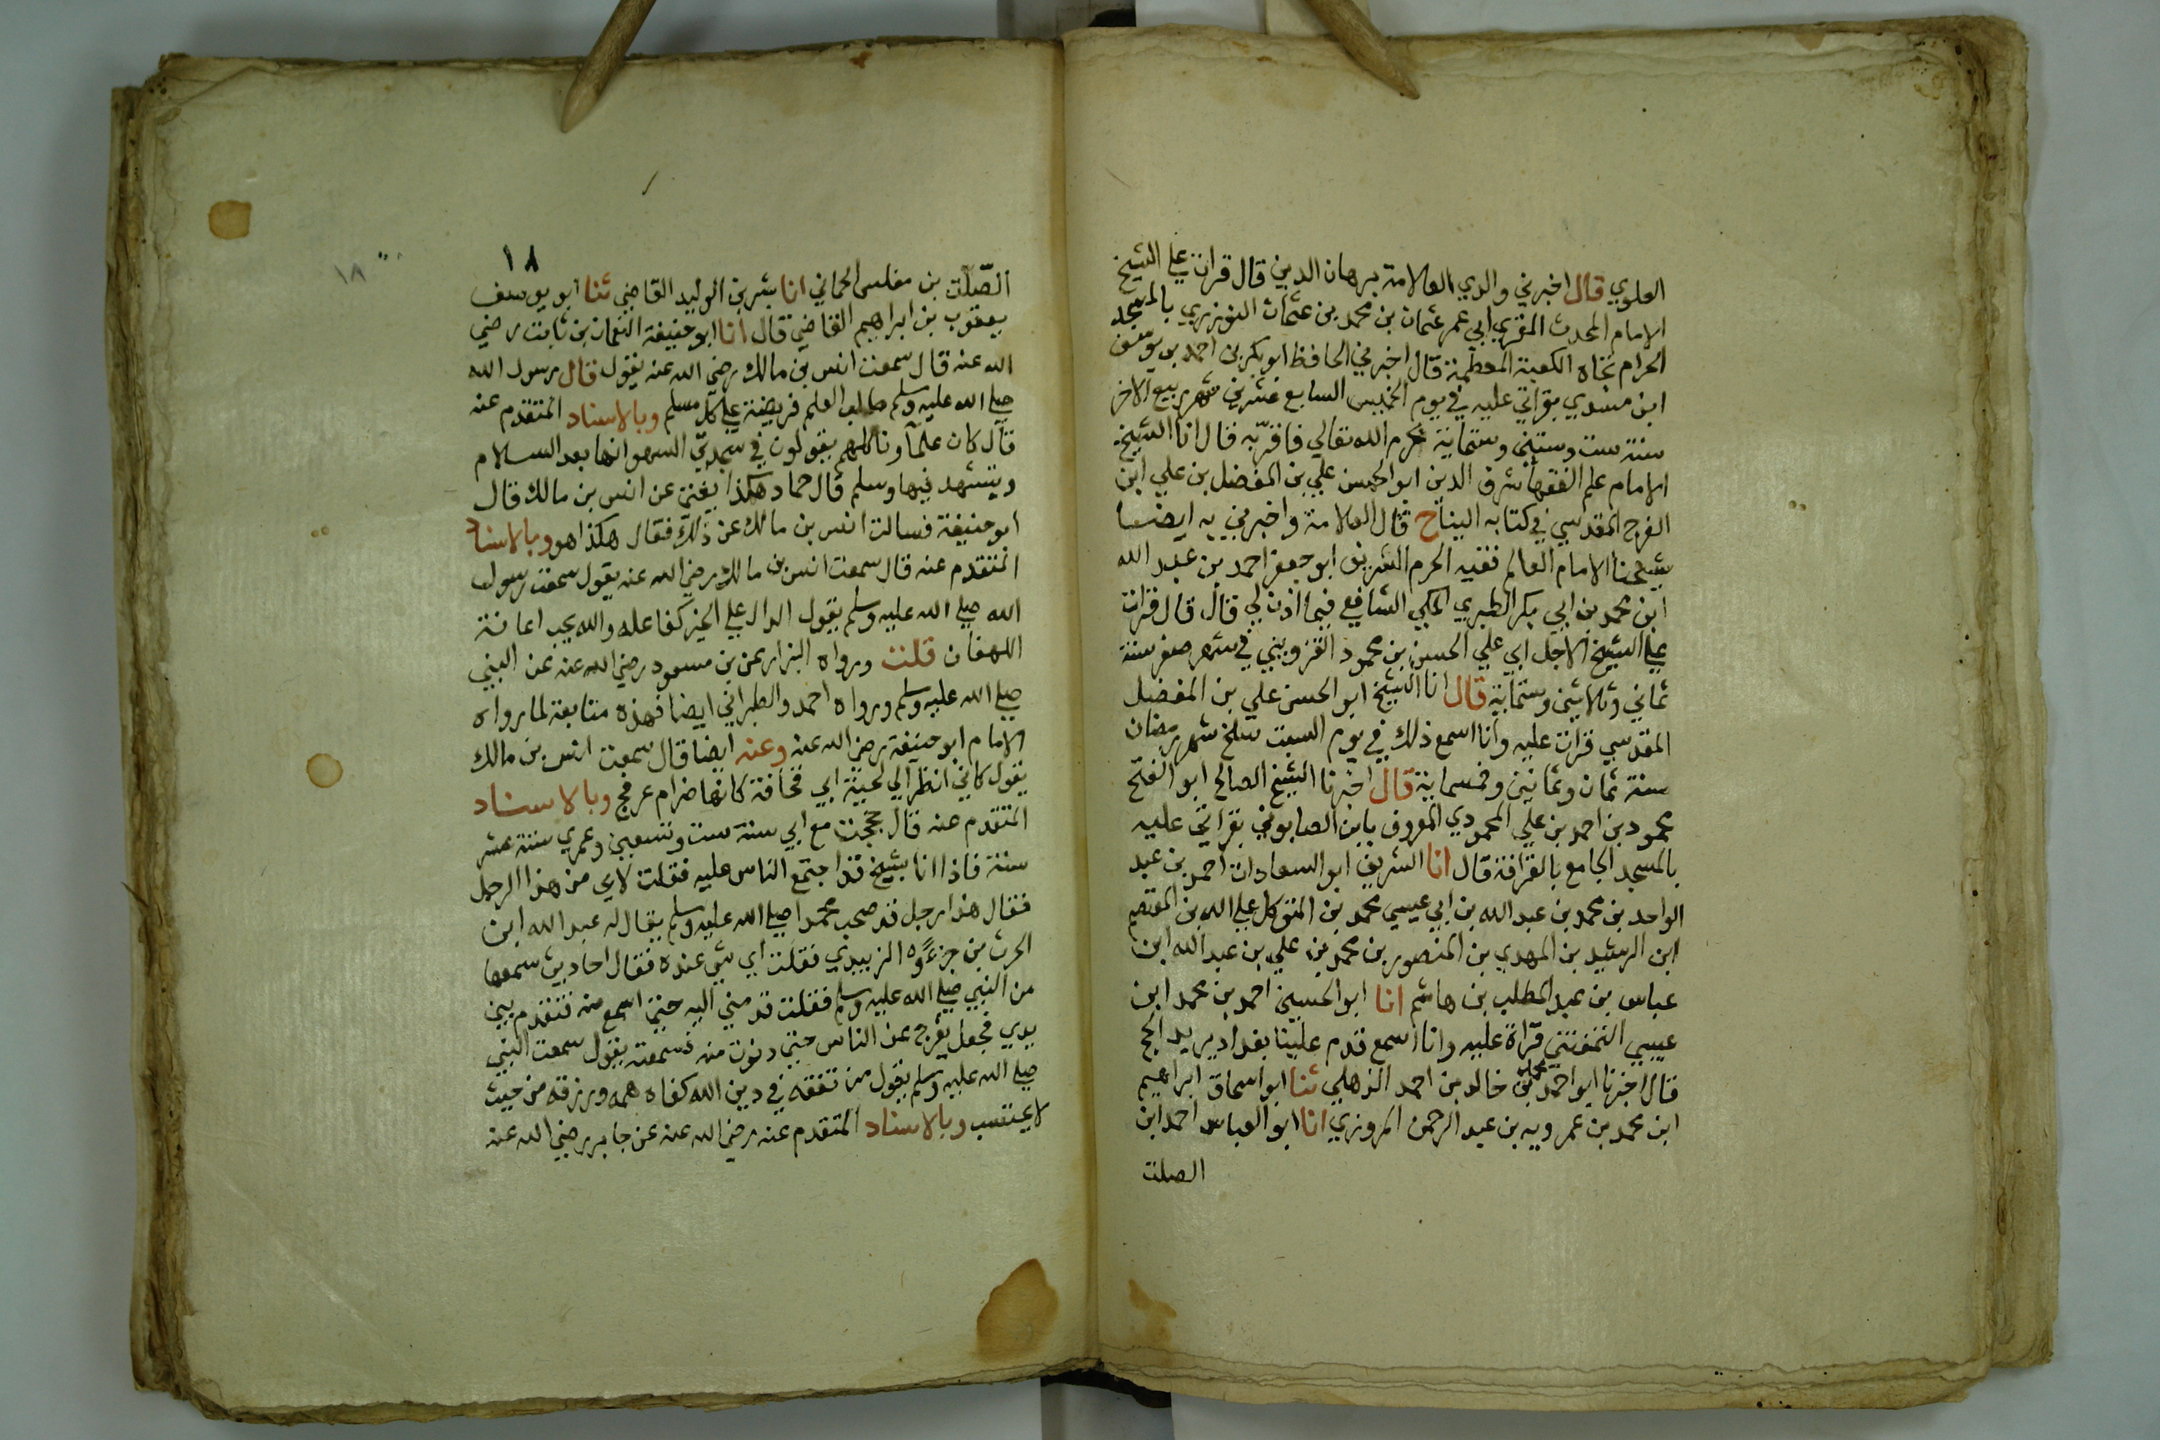 العلوي قال اخبرني والدي العلامة برهان الدين قال قرات علي الشيخ
الامام المحدث المقري ابي عمر عثمان بن محمد بن عثمان التوزري بالمسجد
الحرام تجاه الكعبة المعظمة قال اخبرني الحافظ ابو بكر بن احمد بن يوسف
ابن مسدي بقراتي عليه في يوم الخميس السابع عشر من شهر ربيع الاخر
سنة ست وستين وستماية بحرم الله تعالي فاقر به قال انا الشيخ
الامام علم الفقها شرف الدين ابو الحسن علي بن المفضل بن علي ابن
الفرج المقدسي في كتابه الينا ح قال العلامة واخبرني به ايضا
شيخنا الامام العالم فقيه الحرم الشريف ابو جعفر احمد بن عبد الله
ابن محمد بن ابي بكر الطبري المكي الشافعي فيما اذن لي قال قال قرات
علي الشيخ الاجل ابي علي الحسن بن محمود القزويني في شهر صفر سنة
ثماني وثلاثين وستماية قال انا الشيخ ابو الحسن علي بن المفضل
المقدسي قرات عليه وانا اسمع ذلك في يوم السبت سلخ شهر رمضان
سنة ثمان وثمانين وخمسماية قال اخبرنا الشيخ الصالح ابو الفتح
محمود بن احمد بن علي المحمودي المعروف بابن الصابوني بقراتي عليه
بالمسجد الجامع بالقرافة قال انا الشريف ابو السعادات احمد بن عبد
الواحد بن محمد بن عبد الله بن ابي عيسي محمد بن المتوكل علي الله بن المعتصم
ابن الرشيد بن المهدي بن المنصور بن محمد بن علي بن عبد الله ابن
عباس بن عبد المطلب بن هاشم انا ابو الحسين احمد بن محمد ابن
عيسي قراة عليه وانا اسمع قدم علينا بغداد يريد الحج
قال اخبرنا ابو احمد محمد بن خالد بن احمد الذهلي ثنا ابو اسحاق ابراهيم
ابن محمد بن عمرويه بن عبد الرحمن المروزي انا ابو العباس احمد ابن
الصلت
١٨
١٨
الصّلت بن مغلس الحماني انا بشر بن الوليد القاضي ثنا ابو يوسف
يعقوب بن ابراهيم القاضي قال انا ابو حنيفة النعمان بن ثابت رضي
الله عنه قال سمعت انس بن مالك رضي الله عنه يقول قال رسول الله
صلي الله عليه وسلم طلب العلم فريضة علي كل مسلم وبالاسناد المتقدم عنه
قال كان علمآونا كلهم يقولون في سجدتيّ السهو انها بعد السلام
ويتشهد فيها وسلم قال حماد هكذا عن انس بن مالك قال
ابو حنيفة فسالت انس بن مالك عن ذلك فقال هكذا هو وبالاسناد
المتقدم عنه قال سمعت انس بن مالك رضي الله عنه يقول سمعت رسول
الله صلي الله عليه وسلم يقول الدال علي الخير كفاعله والله يحب اغاثة
اللهفان قلت ورواه البزار عن بن مسعود رضي الله عنه عن النبي
صلي الله عليه وسلم ورواه احمد والطبراني ايضا فهذه متابعة لما رواه
الامام ابو حنيفة رضي الله عنه وعنه ايضا قال سمعت انس بن مالك
يقول كاني انظر الي لحية ابي قحافة كانها ضرام عرفج وبالاسناد
المتقدم عنه قال حججت مع ابي سنة ست وتسعين وعمري ستة عشر
سنة فاذا انا بشيخ قد اجتمع الناس عليه فقلت لابي من هذا الرجل
فقال هذا رجل قد صحب محمدا صلي الله عليه وسلم يقال له عبد الله ابن
الحرث بن جزء الزبيدي فقلت اي شي عنده فقال احاديث سمعها
من النبي صلي الله عليه وسلم فقلت قدمني اليه حتي اسمع منه فتقدم بين
يدي فجعل يفرج عن الناس حتي دنوت منه فسمعته يقول سمعت النبي
صلي الله عليه وسلم يقول من تفقه في دين الله كفاه همه ورزقه من حيث
لا يحتسب وبالاسناد المتقدم عنه رضي الله عنه عن جابر رضي الله عنه